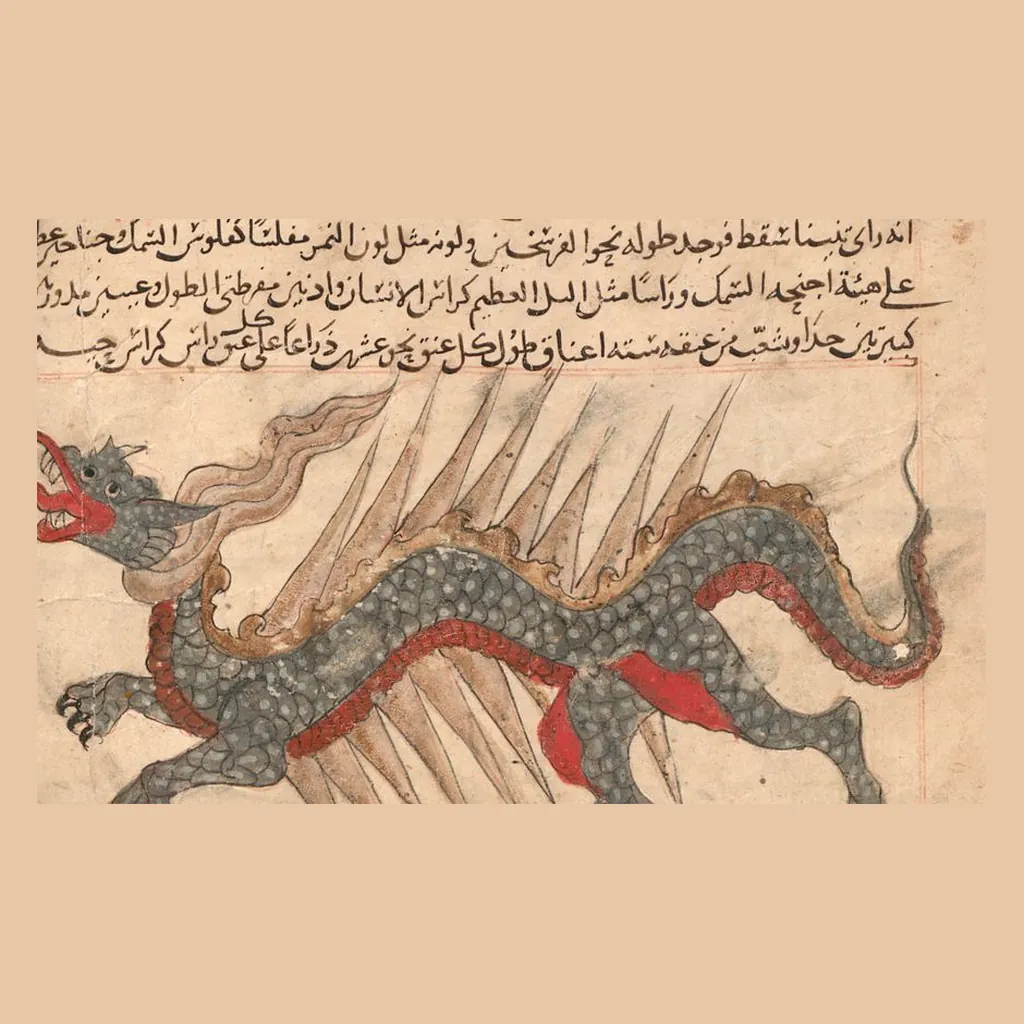 انه راى تنينا سقط فوجد طوله نحوا الفرسخين ولونه مثل لون النمر مفلسا كفلوس السمك وجناحين
على هيئة اجنحه السمك وراسا مثل التل العظيم كراس الانسان واذنين مفرطتى الطول وعينين مدورتين
كبيرتين جدا وتشعب من عنقه سته اعناق طول كل عنق نحو عشرين ذراعا على كل عنق راس كراس